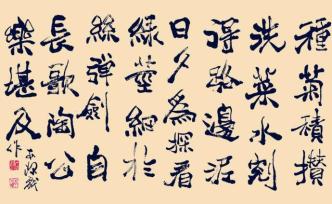 種菊積攢
洗菜水剜
得路邊泥
日夕為探看
綠莖細於
絲彈劍自
長歌陶公
樂堪及
作